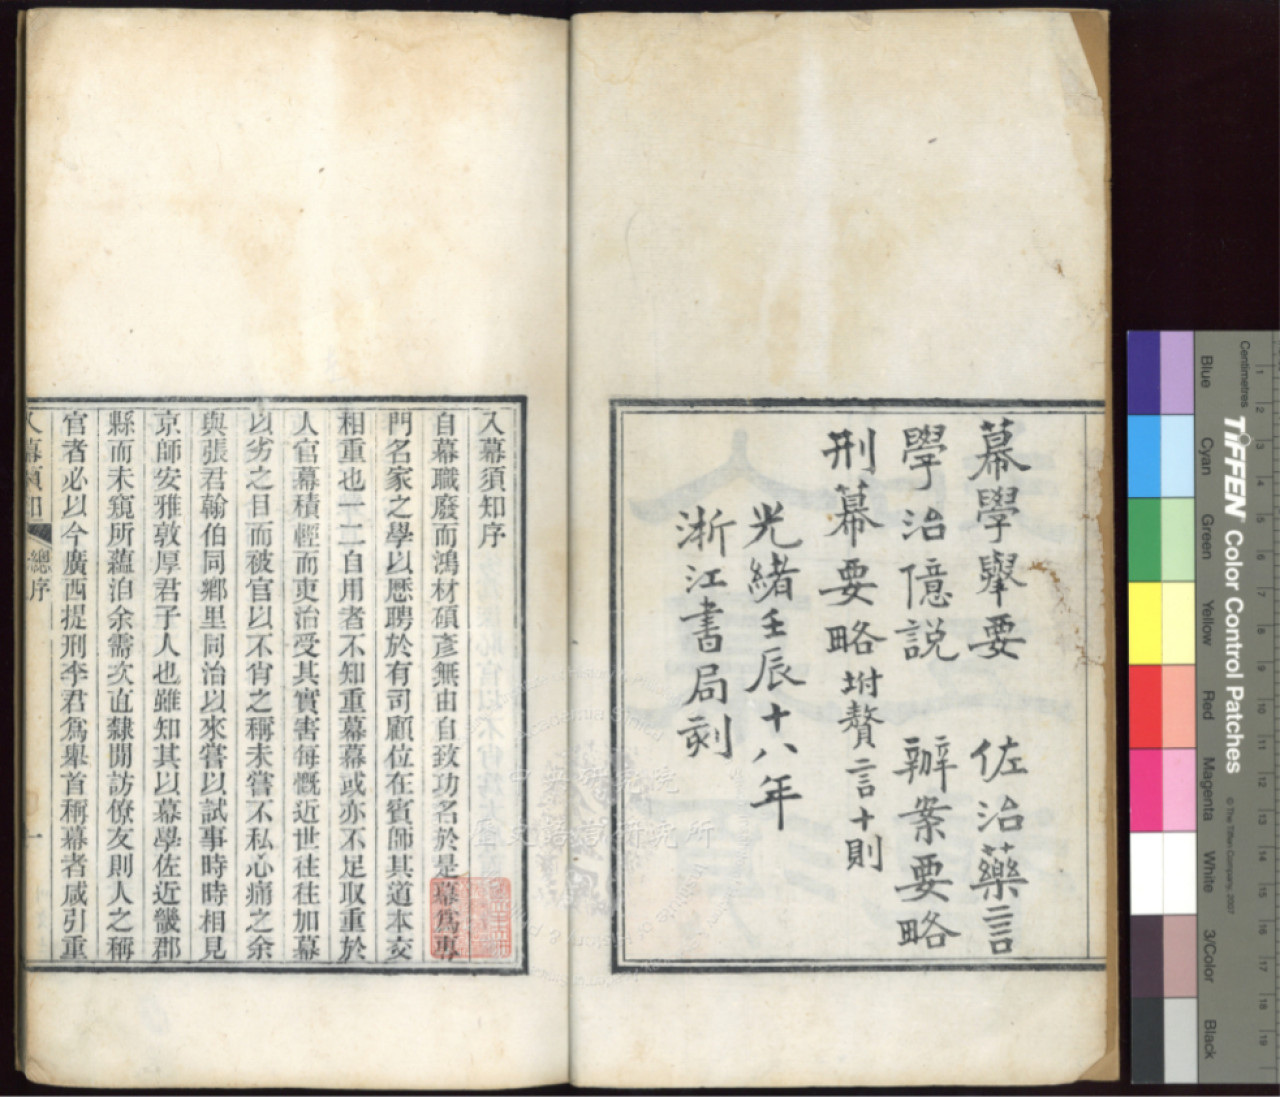 幕學舉要　佐治藥言
學治臆説　辦案要略
刑幕要略附贅言十則
光緒壬辰十八年
浙江書局刻
入幕須知序
自幕職廢而鴻材碩彥無由自致功名於是幕爲專
門名家之學以應聘於有司顧位在賓師其道本交
相重也一二自用者不知重幕幕或亦不足取重於
人官幕積輕而吏治受其實害每慨近世往往加幕
以劣之目而被官以不肖之稱未嘗不私心痛之余
與張君翰伯同鄉里同治以來嘗以試事時時相見
京師安雅敦厚君子人也雖知其以幕學佐近畿郡
縣而未窺所蘊洎余需次直隸閒訪僚友則人之稱
官者必以今廣西提刑李君爲舉首稱幕者咸引重
入幕須知
總序
一
中央研究院
歷史語言研究所
Centimetres
1
2
3
4
5
6
7
8
9
10
11
12
13
14
15
16
17
18
19
TIFFEN Color Control Patches
© The Tiffen Company, 2007
Blue
Cyan
Green
Yellow
Red
Magenta
White
3/Color
Black